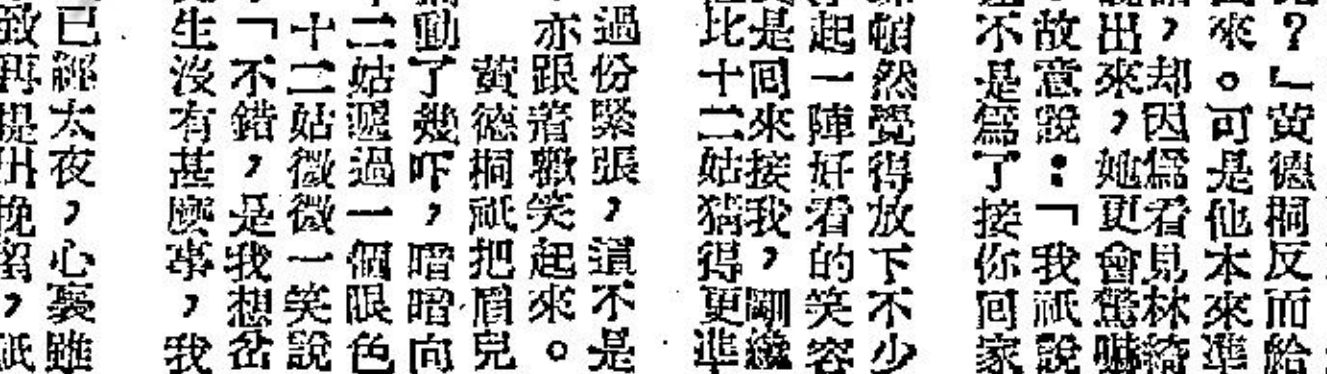 ？』黃德桐反而給
來。可是他本來準
，却因爲看見林綺
出來，她更會驚嚇
故意說：「我祇說
不是爲了接你囘家
頓然覺得放下不少
起一陣好看的笑容
是囘來接我，剛纔
比十二姑猜得更準
過份緊張，這不是
亦跟着歡笑起來。
黃德桐祇把眉兒
動了幾吓，暗暗向
二姑遞過一個眼色
十二姑微微一笑說
「不錯，是我想岔
生沒有甚麽事，我
已經太夜，心裏雖
致再提出挽留，祇